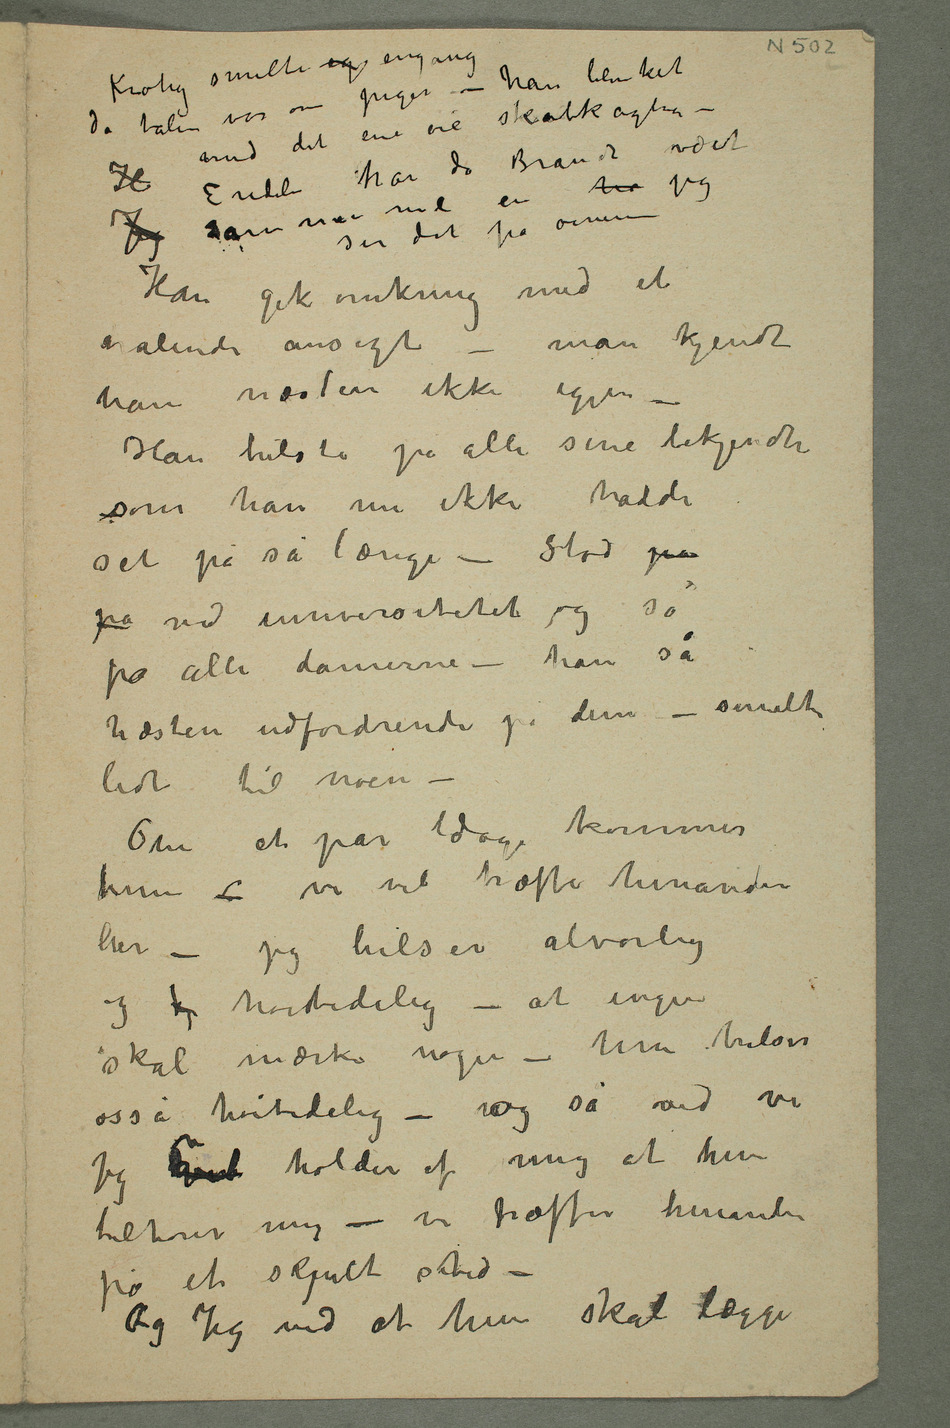 N 502
Krohg smilte engang
da talen var om piger – han blinket
med det ene øie skalkagtig –
Endelig har da Brandt været
sammen med en jeg
ser det på øinene
Han gik omkring med et
strålende ansigt – man kjendte
ham næsten ikke igjen –
Han hilste på alle sine bekjendte
som han nu ikke hadde
set på så længe – Stod på
på ved universitetet og så
på alle damerne – han så
næsten udfordrende på dem – smilte
lidt til noen –
Om et par dage kommer
hun – vi vil træffe hinanden
her – jeg hilser alvorlig
og høitidelig – at ingen
skal mærke noget – hun hilser
osså høitidelig – og så ved vi
jeg holder af mig at hun
tilhører mig – vi træffer hinanden
på et skjult sted –
Og Jeg ved at hun skal lægge